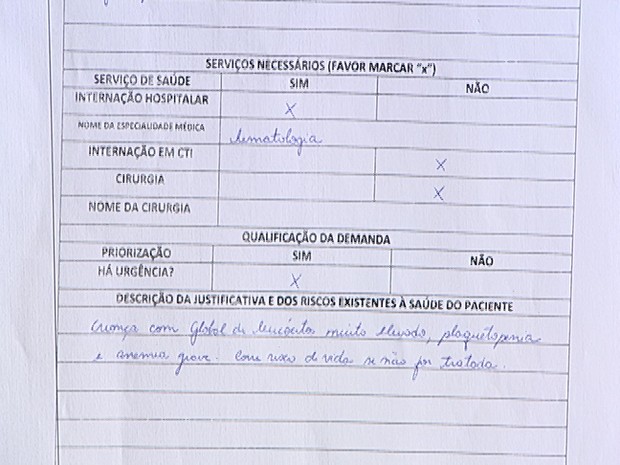 SERVIÇOS NECESSÁRIOS (FAVOR MARCAR "x")
SERVIÇO DE SAÚDE SIM NÃO
INTERNAÇÃO HOSPITALAR X
NOME DA ESPECIALIDADE MÉDICA hematologia
INTERNAÇÃO EM CTI X
CIRURGIA X
NOME DA CIRURGIA
QUALIFICAÇÃO DA DEMANDA
PRIORIZAÇÃO SIM NÃO
HÁ URGÊNCIA? X
DESCRIÇÃO DA JUSTIFICATIVA E DOS RISCOS EXISTENTES À SAÚDE DO PACIENTE
criança com global de leucócitos muito elevado, plaquetopenia
e anemia grave. Com risco de vida se não for tratada.